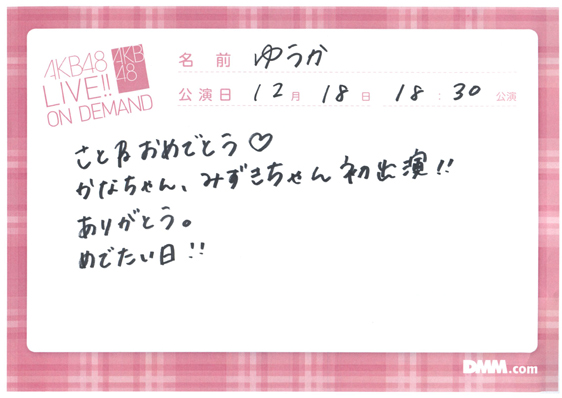 AKB48
LIVE!!
ON DEMAND
AKB
48
名前 ゆうか
公演日 12月 18日 18:30公演
さとBおめでとう♡
かなちゃん、みずきちゃん初出演!!
ありがとう。
めでたい日!!
DMM.com